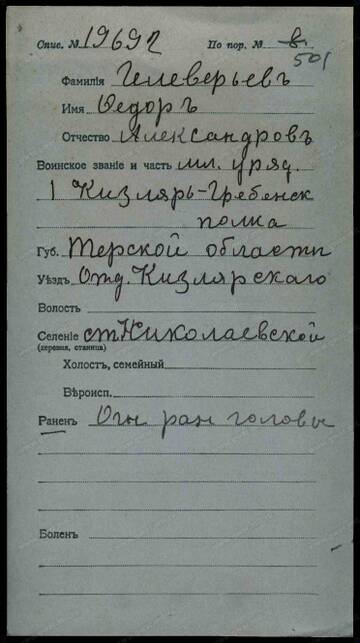 Спис. № 19692 По пор. № 8
501
Фамилія Гелеверьевъ
Имя Ѳедоръ
Отчество Александровъ
Воинское званіе и часть мл. уряд.
1 Кизляръ-Гребенск
полка
Губ. Терской области
Уѣздъ Отд. Кизлярскаго
Волость
Селеніе ст Николаевской
(деревня, станица)
Холостъ, семейный
Вѣроисп.
Раненъ Огн ран головы
Боленъ